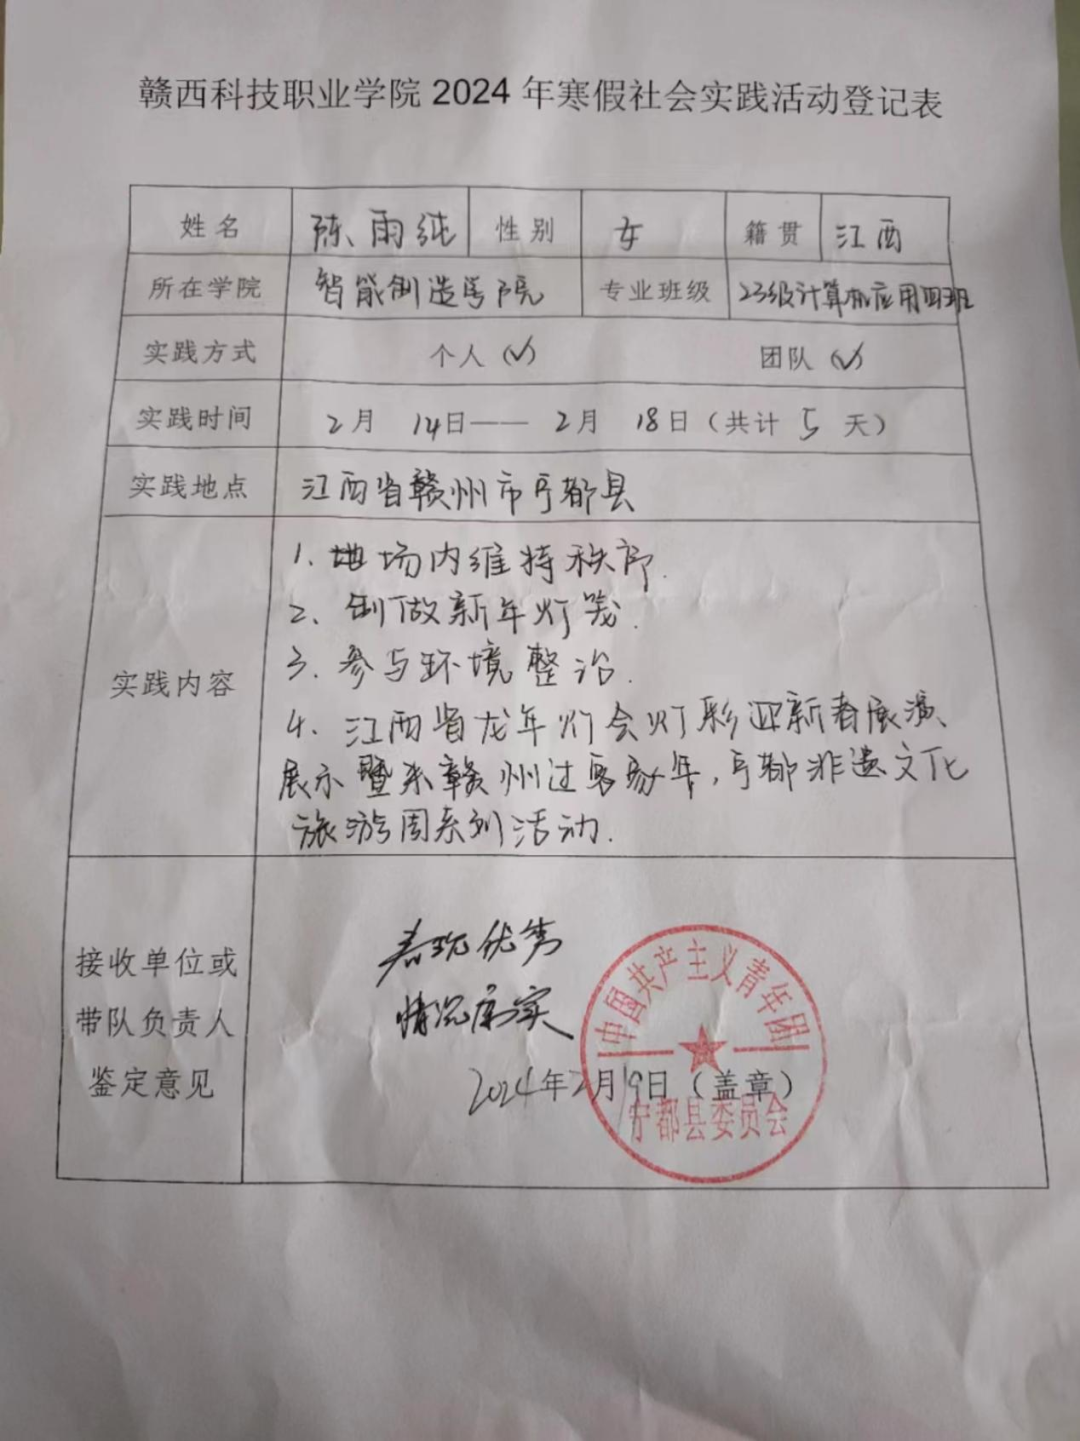 赣西科技职业学院 2024 年寒假社会实践活动登记表
姓名 陈雨纯 性别 女 籍贯 江西
所在学院 智能制造学院 专业班级 23级计算机应用四班
实践方式 个人(✓) 团队(✓)
实践时间 2月 14日—— 2月 18日(共计 5 天)
实践地点 江西省赣州市宁都县
实践内容
1. 场内维持秩序.
2、制做新年灯笼.
3、参与环境整治.
4、江西省龙年灯会灯彩迎新春展演、
展示暨来赣州过客家年,宁都非遗文化
旅游周系列活动.
接收单位或
带队负责人
鉴定意见
表现优秀
情况属实
2024年2月19日(盖章)
中国共产主义青年团
宁都县委员会